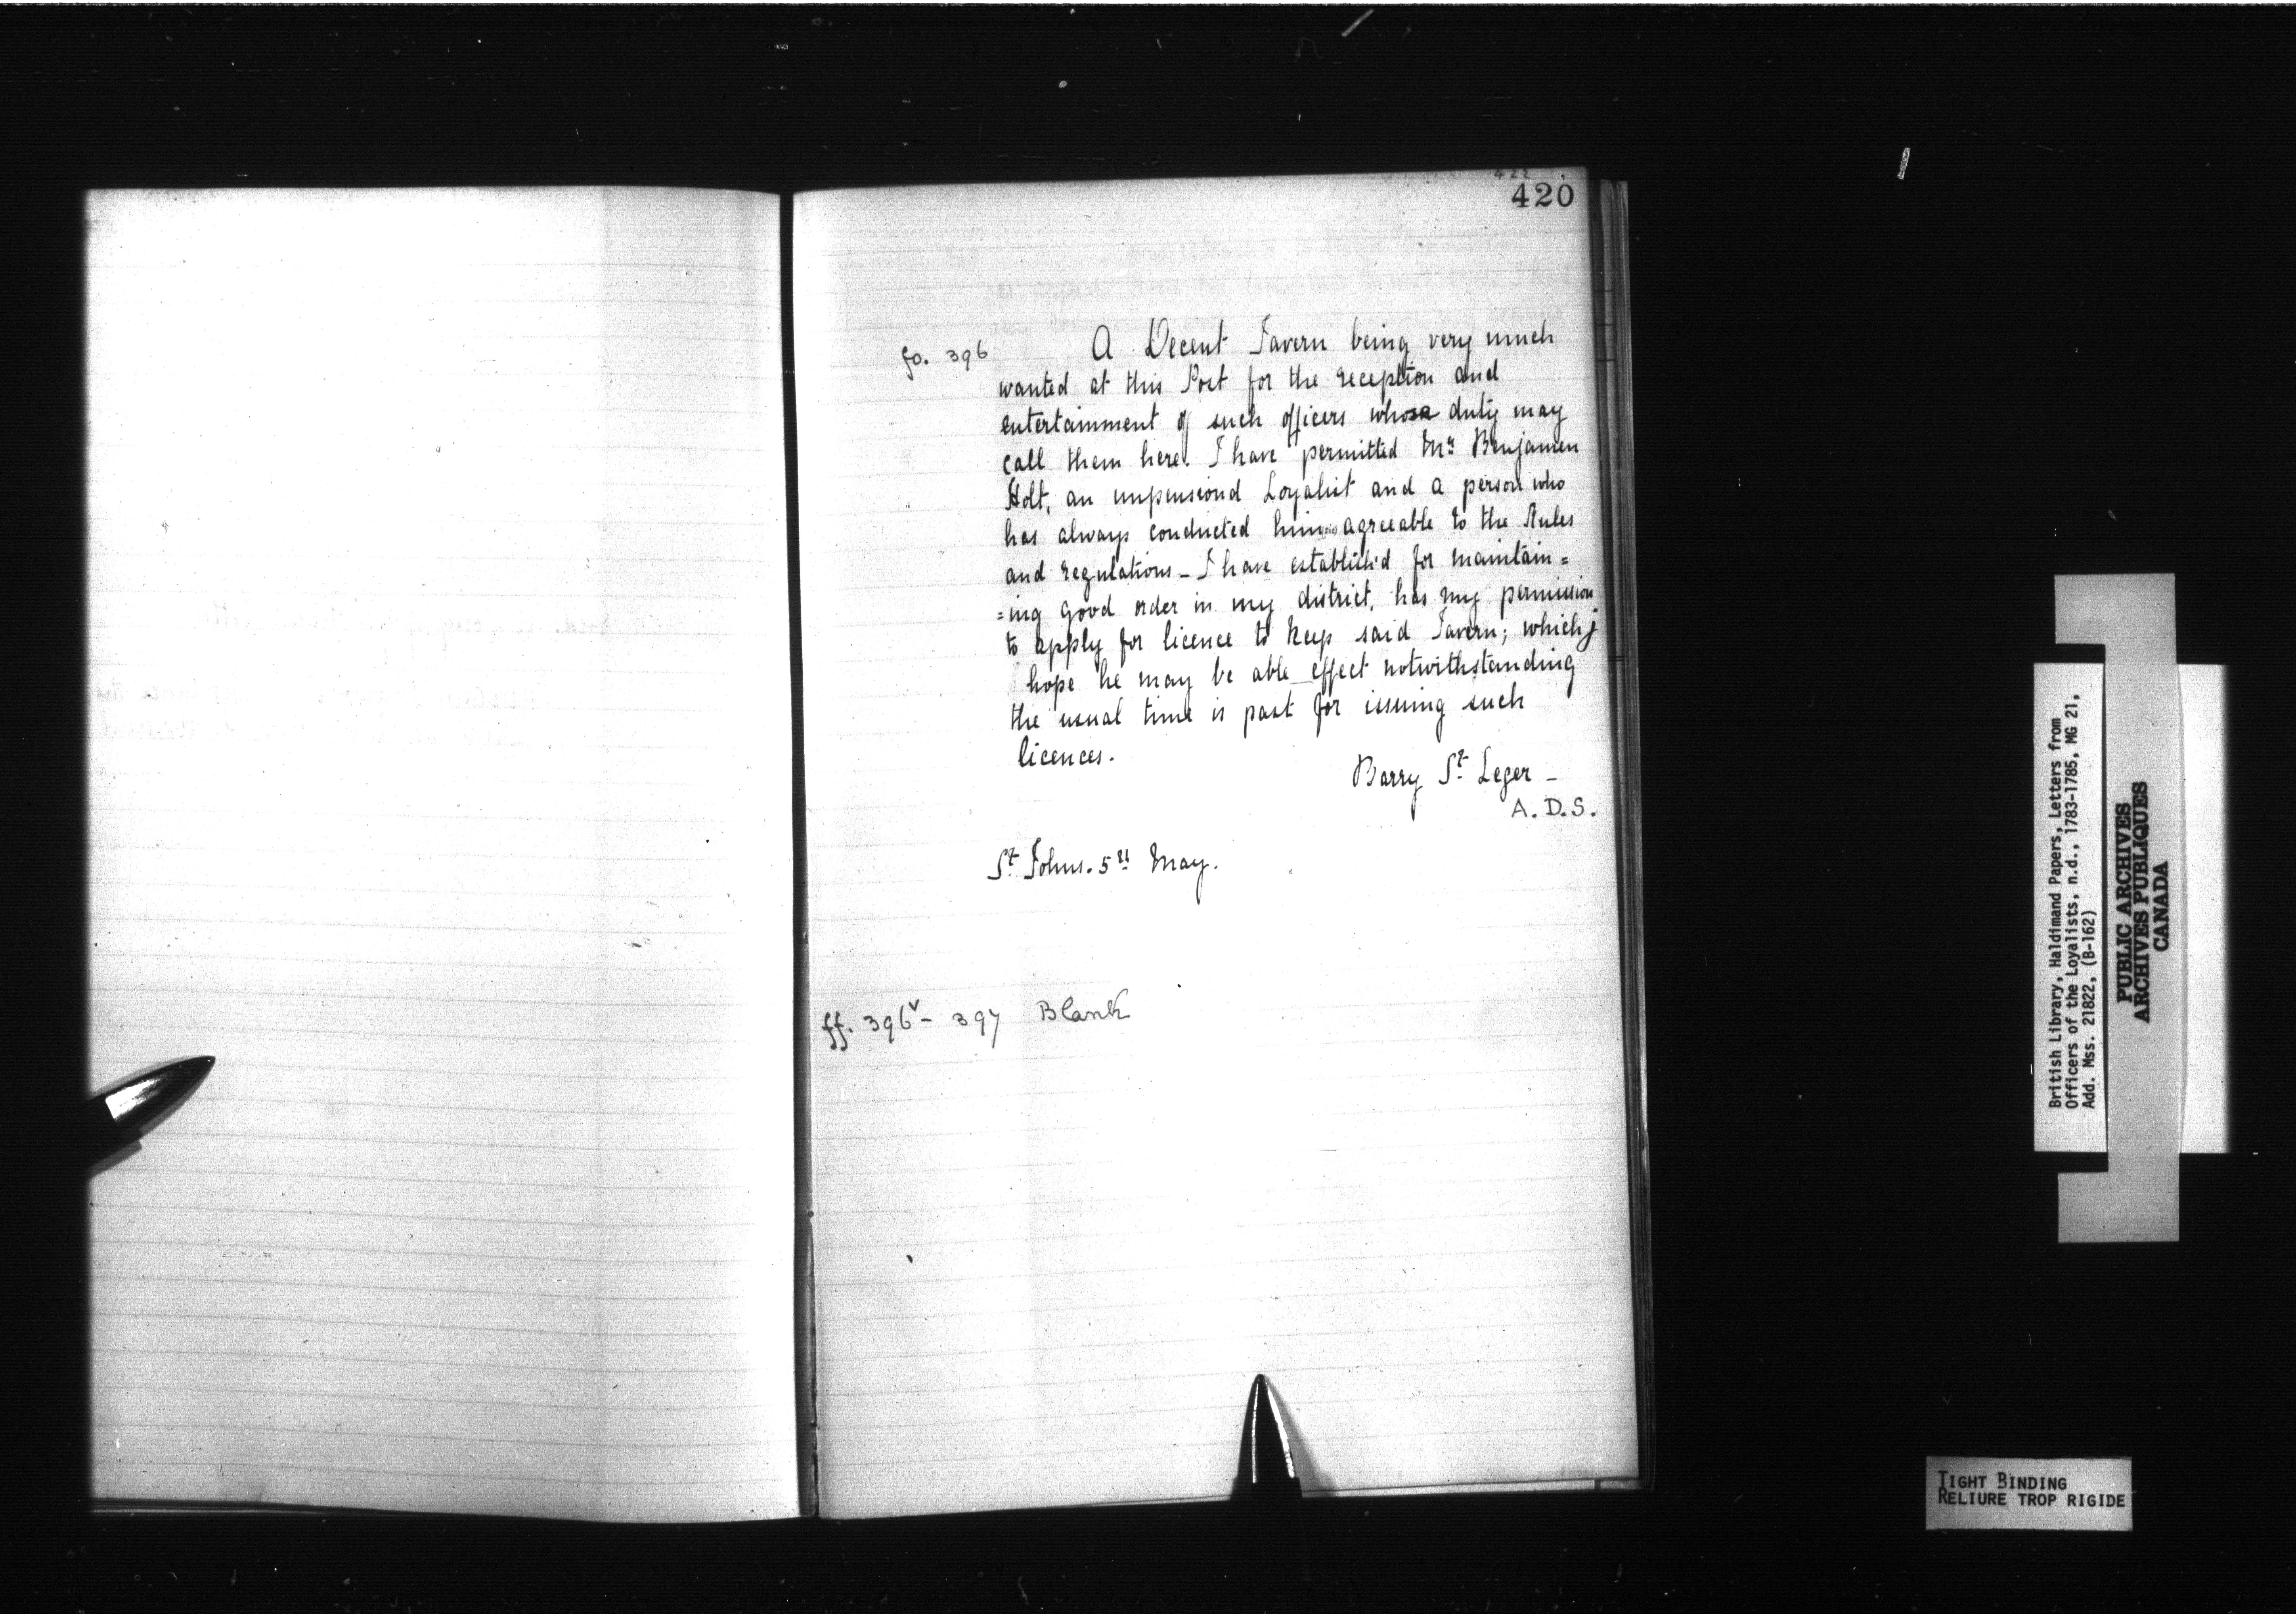 422
420
fo. 396
A Decent Tavern being very much
wanted at this Post for the reception and
entertainment of such officers whose duty may
call them here. I have permitted Mr Benjamen
Holt, an unpensiond Loyalist and a person who
has always conducted him agreeable to the Rules
and regulations - I have establish'd for maintain=
=ing good order in my district, has my permission
to apply for licence to keep said Tavern; which j
hope he may be able effect notwithstanding
the usual time is past for issuing such
licences.
Barry St Leger -
A.D.S.
St Johns. 5th May.
ff. 396v - 397 Blank
British Library, Haldimand Papers, Letters from
Officers of the Loyalists, n.d., 1783-1785, MG 21,
Add. Mss. 21822, (B-162)
PUBLIC ARCHIVES
ARCHIVES PUBLIQUES
CANADA
TIGHT BINDING
RELIURE TROP RIGIDE